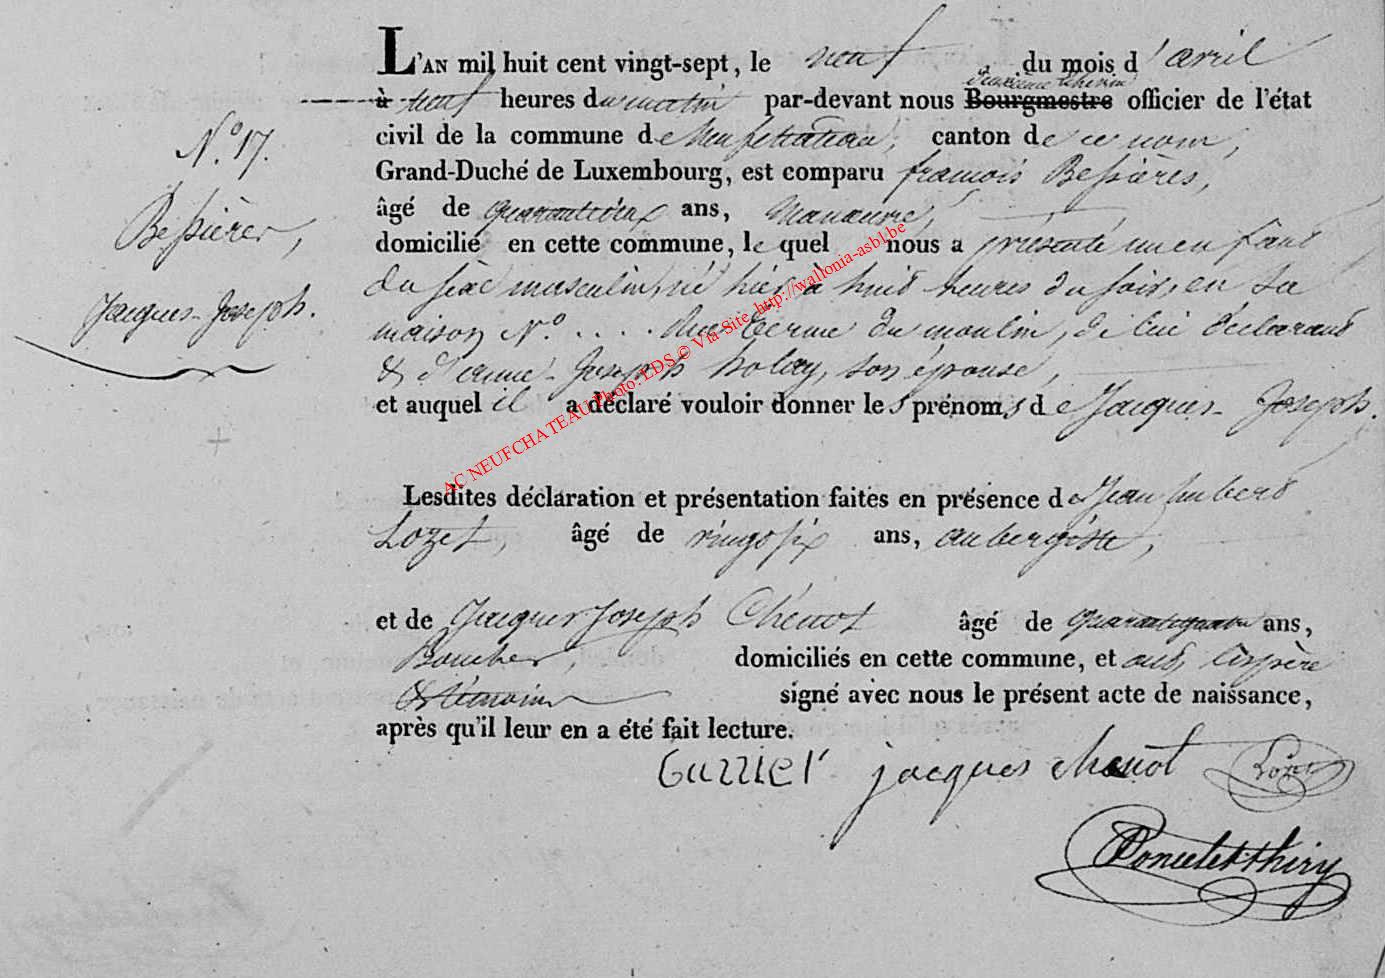 L'AN mil huit cent vingt-sept, le neuf du mois d'avril
deuxième Echevin
à neuf heures du matin par-devant nous Bourgmestre officier de l'état
civil de la commune de Neufchateau, canton de ce nom,
N.° 17.
Grand-Duché de Luxembourg, est comparu francois Bessières,
âgé de quarantedeux ans, Manœuvre,
Bessières,
domicilié en cette commune, le quel nous a présenté un enfant
du sèxe masculin, né hier à huit heures du soir, en sa
Jacques-Joseph.
maison N.° .... du moulin, de lui déclarant
& d'anne-Joseph holay, son épouse,
et auquel il a déclaré vouloir donner les prénoms de Jacques-Joseph.
AC NEUFCHATEAU Photo: LDS © Via Site http://wallonia-asbl.be
Lesdites déclaration et présentation faites en présence de Jean hubert
Lozet, âgé de vingt six ans, aubergiste,
et de Jacques Joseph Chénot âgé de ans,
Boucher, domiciliés en cette commune, et ont, le père
& témoins signé avec nous le présent acte de naissance,
après qu'il leur en a été fait lecture.
jacques chenot Lozet
Poncelet thiry